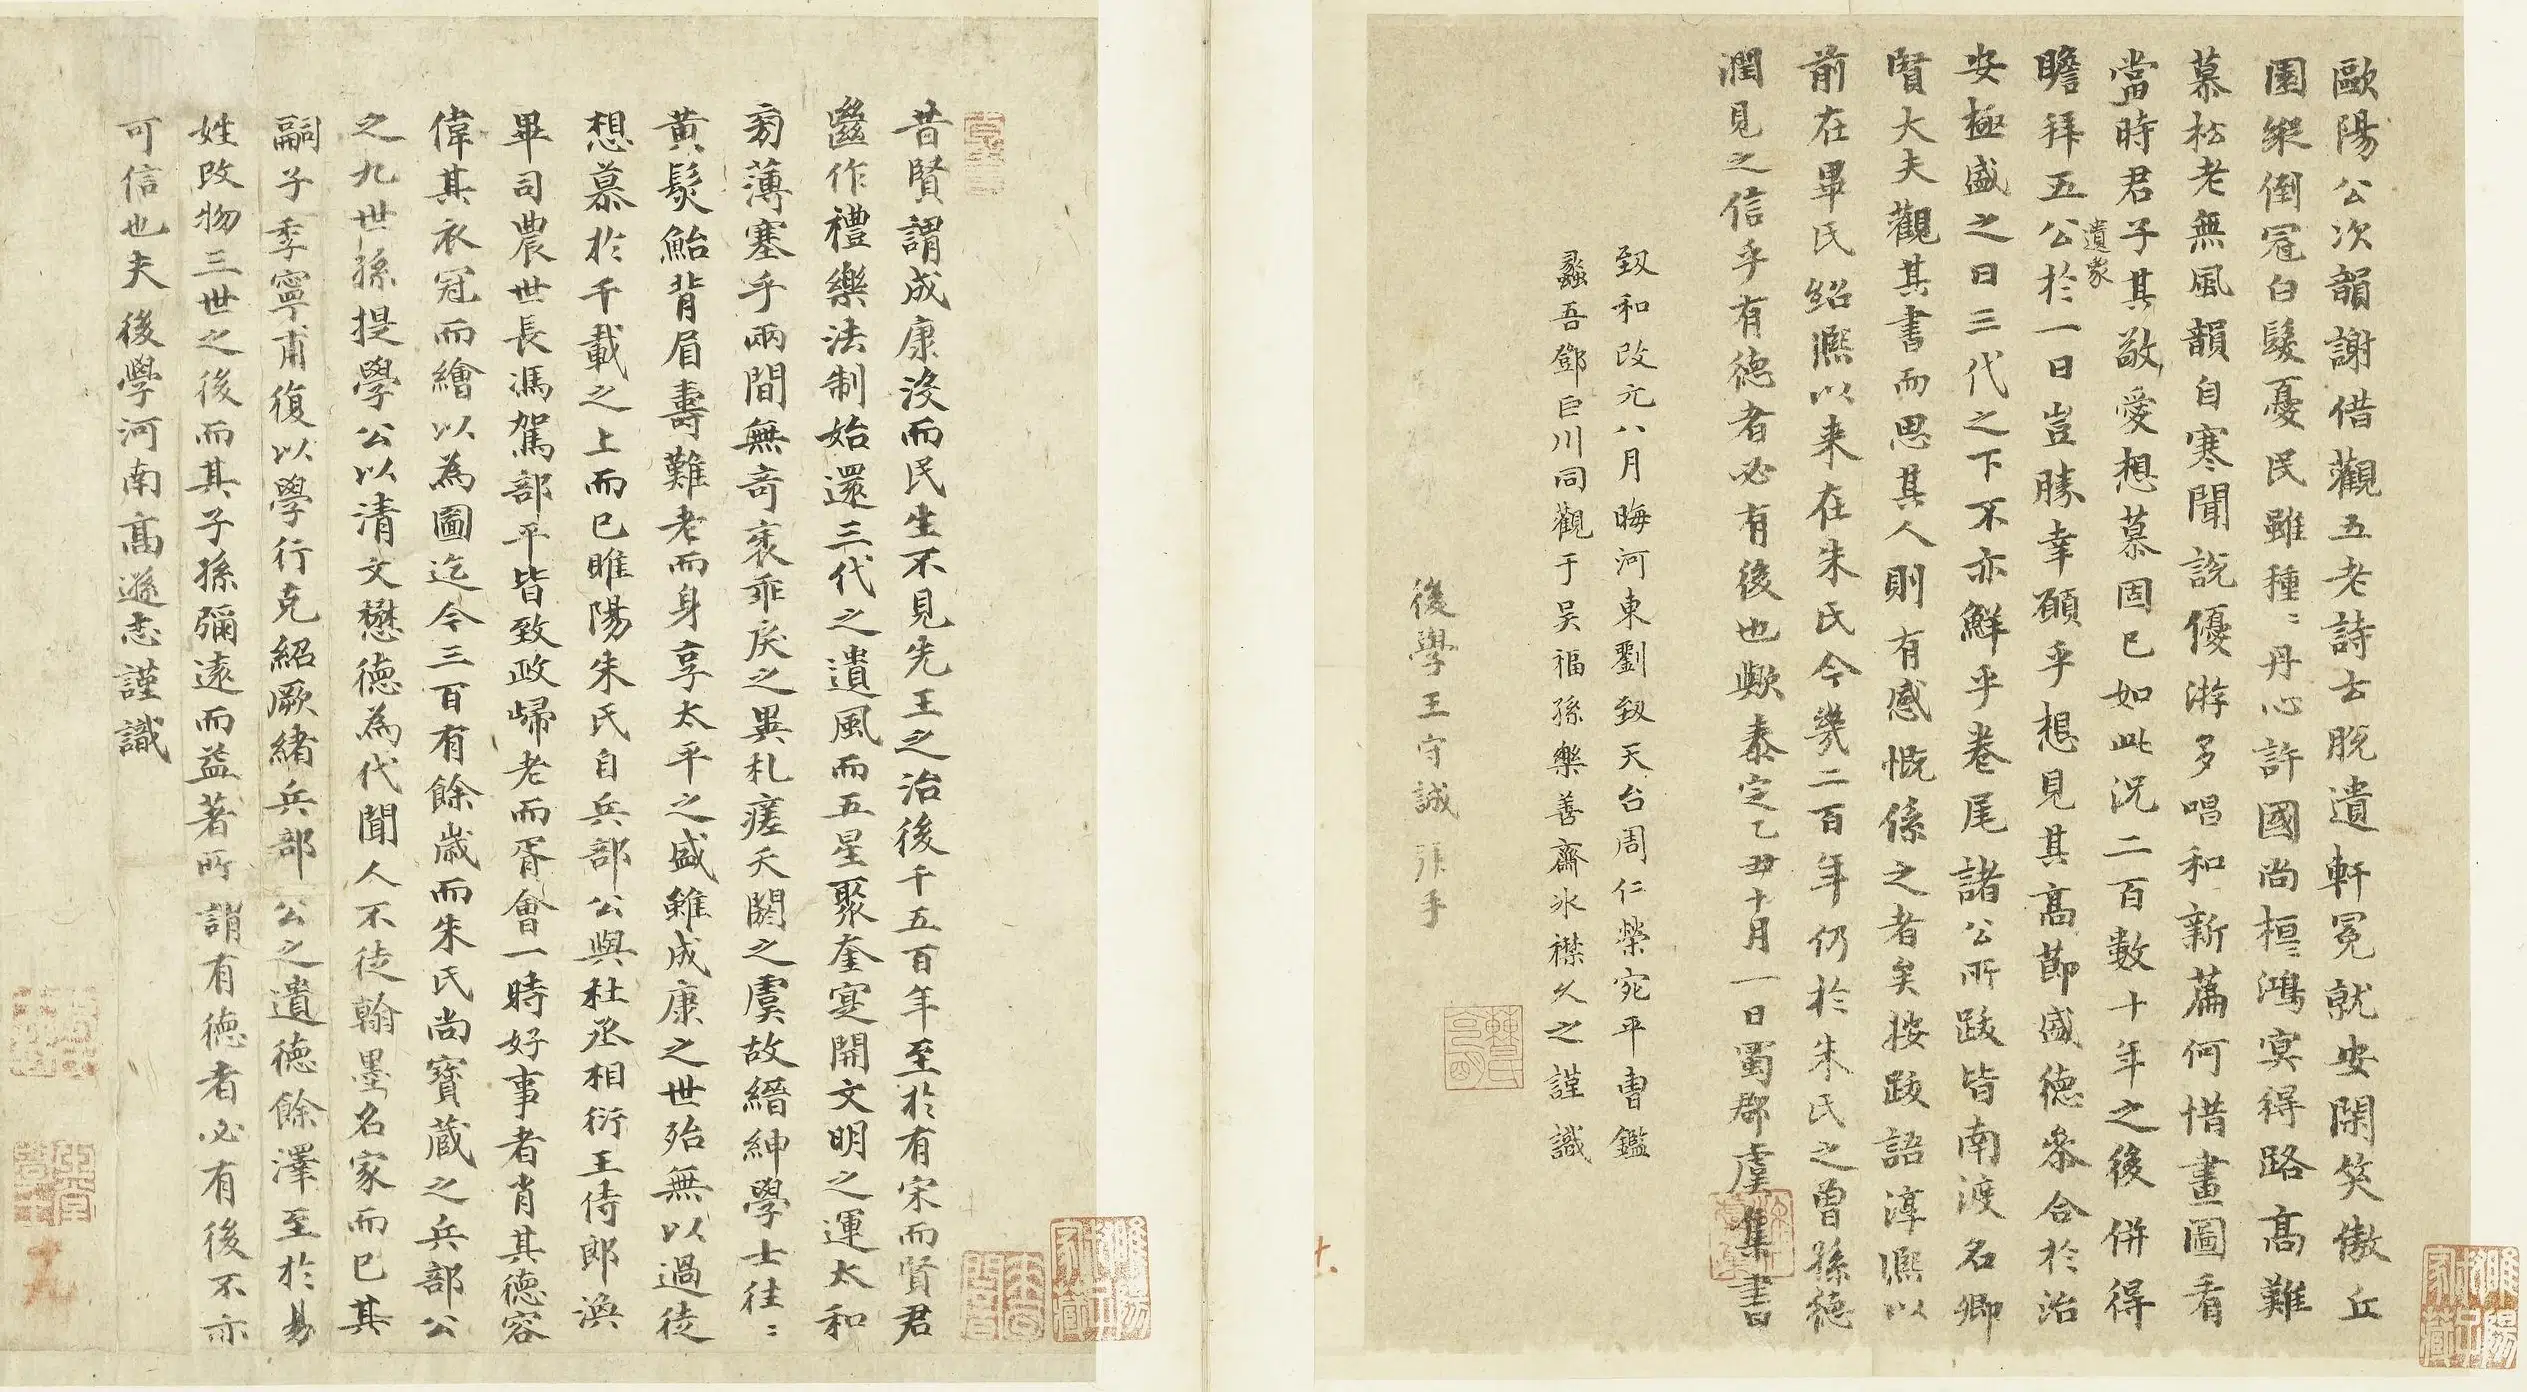 歐陽公次韻謝借觀五老詩士脫遺軒冕就安閑笑傲丘
園縱倒冠白髮憂民雖種〻丹心許國尚桓〻鴻冥得路高難
慕松老無風韻自寒聞說優游多唱和新篇何惜畫圖看
當時君子其敬愛想慕固已如此況二百數十年之後併得
遺象
瞻拜五公於一日豈勝幸願乎想見其高節盛德參合於治
安極盛之日三代之下不亦鮮乎卷尾諸公所跋皆南渡名卿
賢大夫觀其書而思其人則有感慨係之者矣按跋語淳熙以
前在畢氏紹熙以来在朱氏今幾二百年仍於朱氏之曾孫德
潤見之信乎有德者必有後也歟泰定乙丑十月一日蜀郡虞集書
致和改元八月晦河東劉致天台周仁榮宛平曹鑑
蠡吾鄧巨川同觀于吴福孫樂善齋冰襟久之謹識
後學王守誠
昔賢謂成康沒而民生不見先王之治後千五百年至於有宋而賢君
繼作禮樂法制始還三代之遺風而五星聚奎寔開文明之運太和
旁薄塞乎兩間無奇衺乖戾之異札瘥夭閼之虞故縉紳學士往〻
黄髮鮐背眉壽難老而身享太平之盛雖成康之世殆無以過徒
想慕於千載之上而已睢陽朱氏自兵部公與杜丞相衍王侍郎渙
畢司農世長馮駕部平皆致政歸老而胥會一時好事者肖其德容
偉其衣冠而繪以為圖迄今三百有餘歲而朱氏尚寳藏之兵部公
之九世孫提學公以清文懋德為代聞人不徒翰墨名家而已其
嗣子季寧甫復以學行克紹厥緒兵部公之遺德餘澤至於易
姓改物三世之後而其子孫彌遠而益著所謂有德者必有後不亦
可信也夫後學河南高遜志謹識